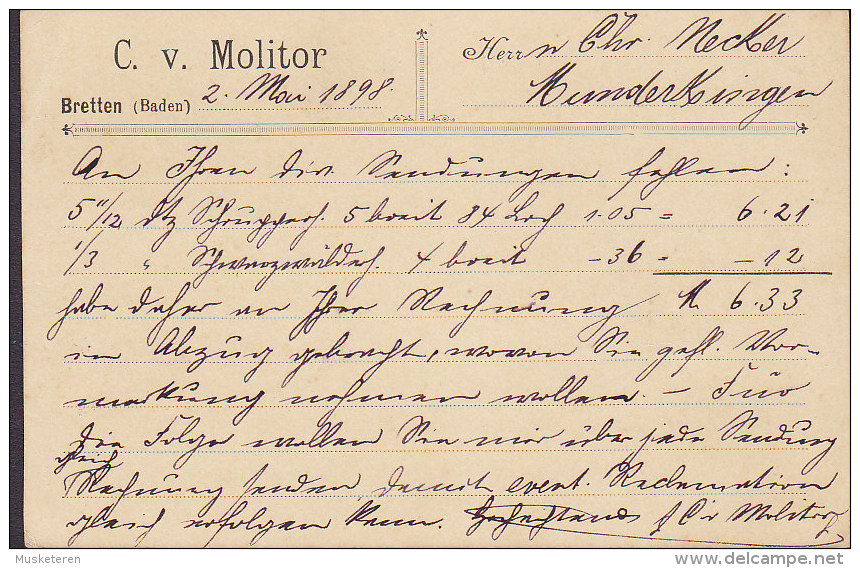 C. v. Molitor
Bretten (Baden) 2. Mai 1898.
Herrn Chr. Necker
Munderkingen
An Ihren div. Sendungen fehlen:
5 11/12 dtz Schrupperh. 5 breit 84 Loch 1.05 = 6.21
1/3 " Schwarzwälderh. 4 breit -36 = -12
habe daher an Ihrer Rechnung M. 6.33
in Abzug gebracht, wovon Sie gefl. Vor-
merkung nehmen wollen. - Für
die Folge wollen Sie mir über jede Sendung
gleich
Rechnung senden, damit event. Reclamation
gleich erfolgen kann. C v Molitor
Musketeren
delcampe.net